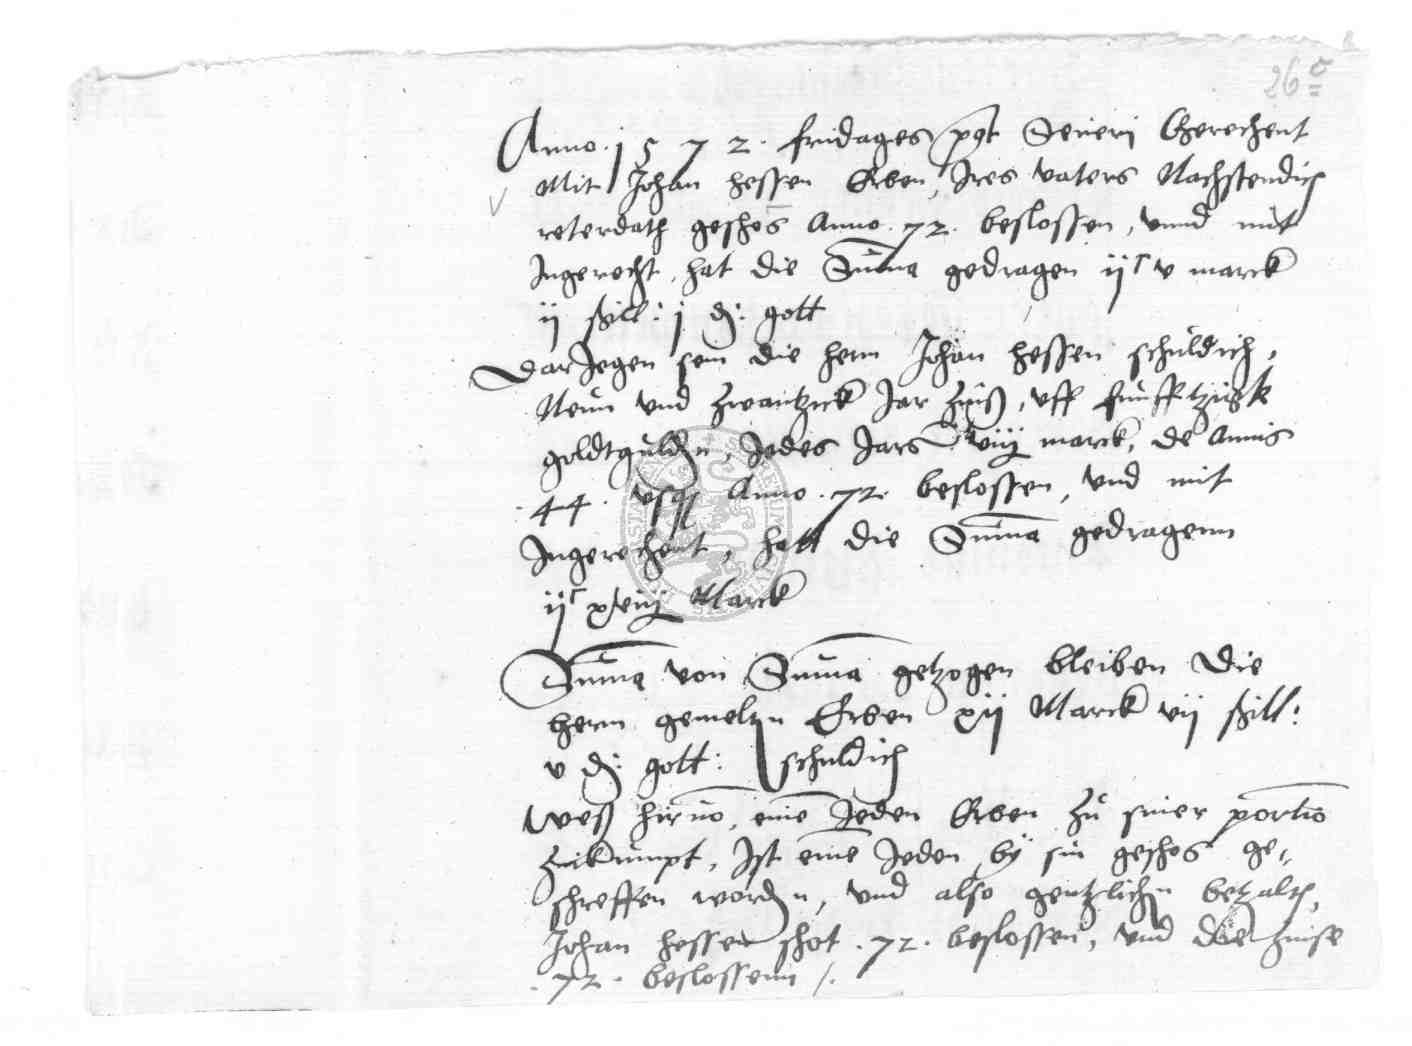 26 c
Anno. 1572. fridages post Severi Gerechent
Mit Johan hessen Erben, Ires vaters Nachstendich
reterdath geschos Anno. 72. beslossen, vnnd mit
Ingerecht, hat die Suma gedragen ijc v marck
ij ßill: j d: gott
Dar Jegen sein die hern Johan hessen schuldich,
Neun vnd Zwantzick Jar Zins, vff funfftzigk
goldtgulden, Jedes Jars viij marck, de Annis
.44. vsque Anno. 72. beslossen, vnd mit
Ingerechent, hatt die Suma gedragenn
ijc xviij Marck
Suma von Suma getzogen bleiben Die
hern gemelten Erben xij Marck vij ßill:
v d: gott: schuldich
Weß hirvo, eine Jeden Erben zu siner portio
Zukumpt, Ist eine Jeden by sin geschos ge=
schreffen worden, vnd also gentzlichen betzalt,
Johan hessen schot .72. beslossen, vnd die Zinse
.72. beslossenn /.